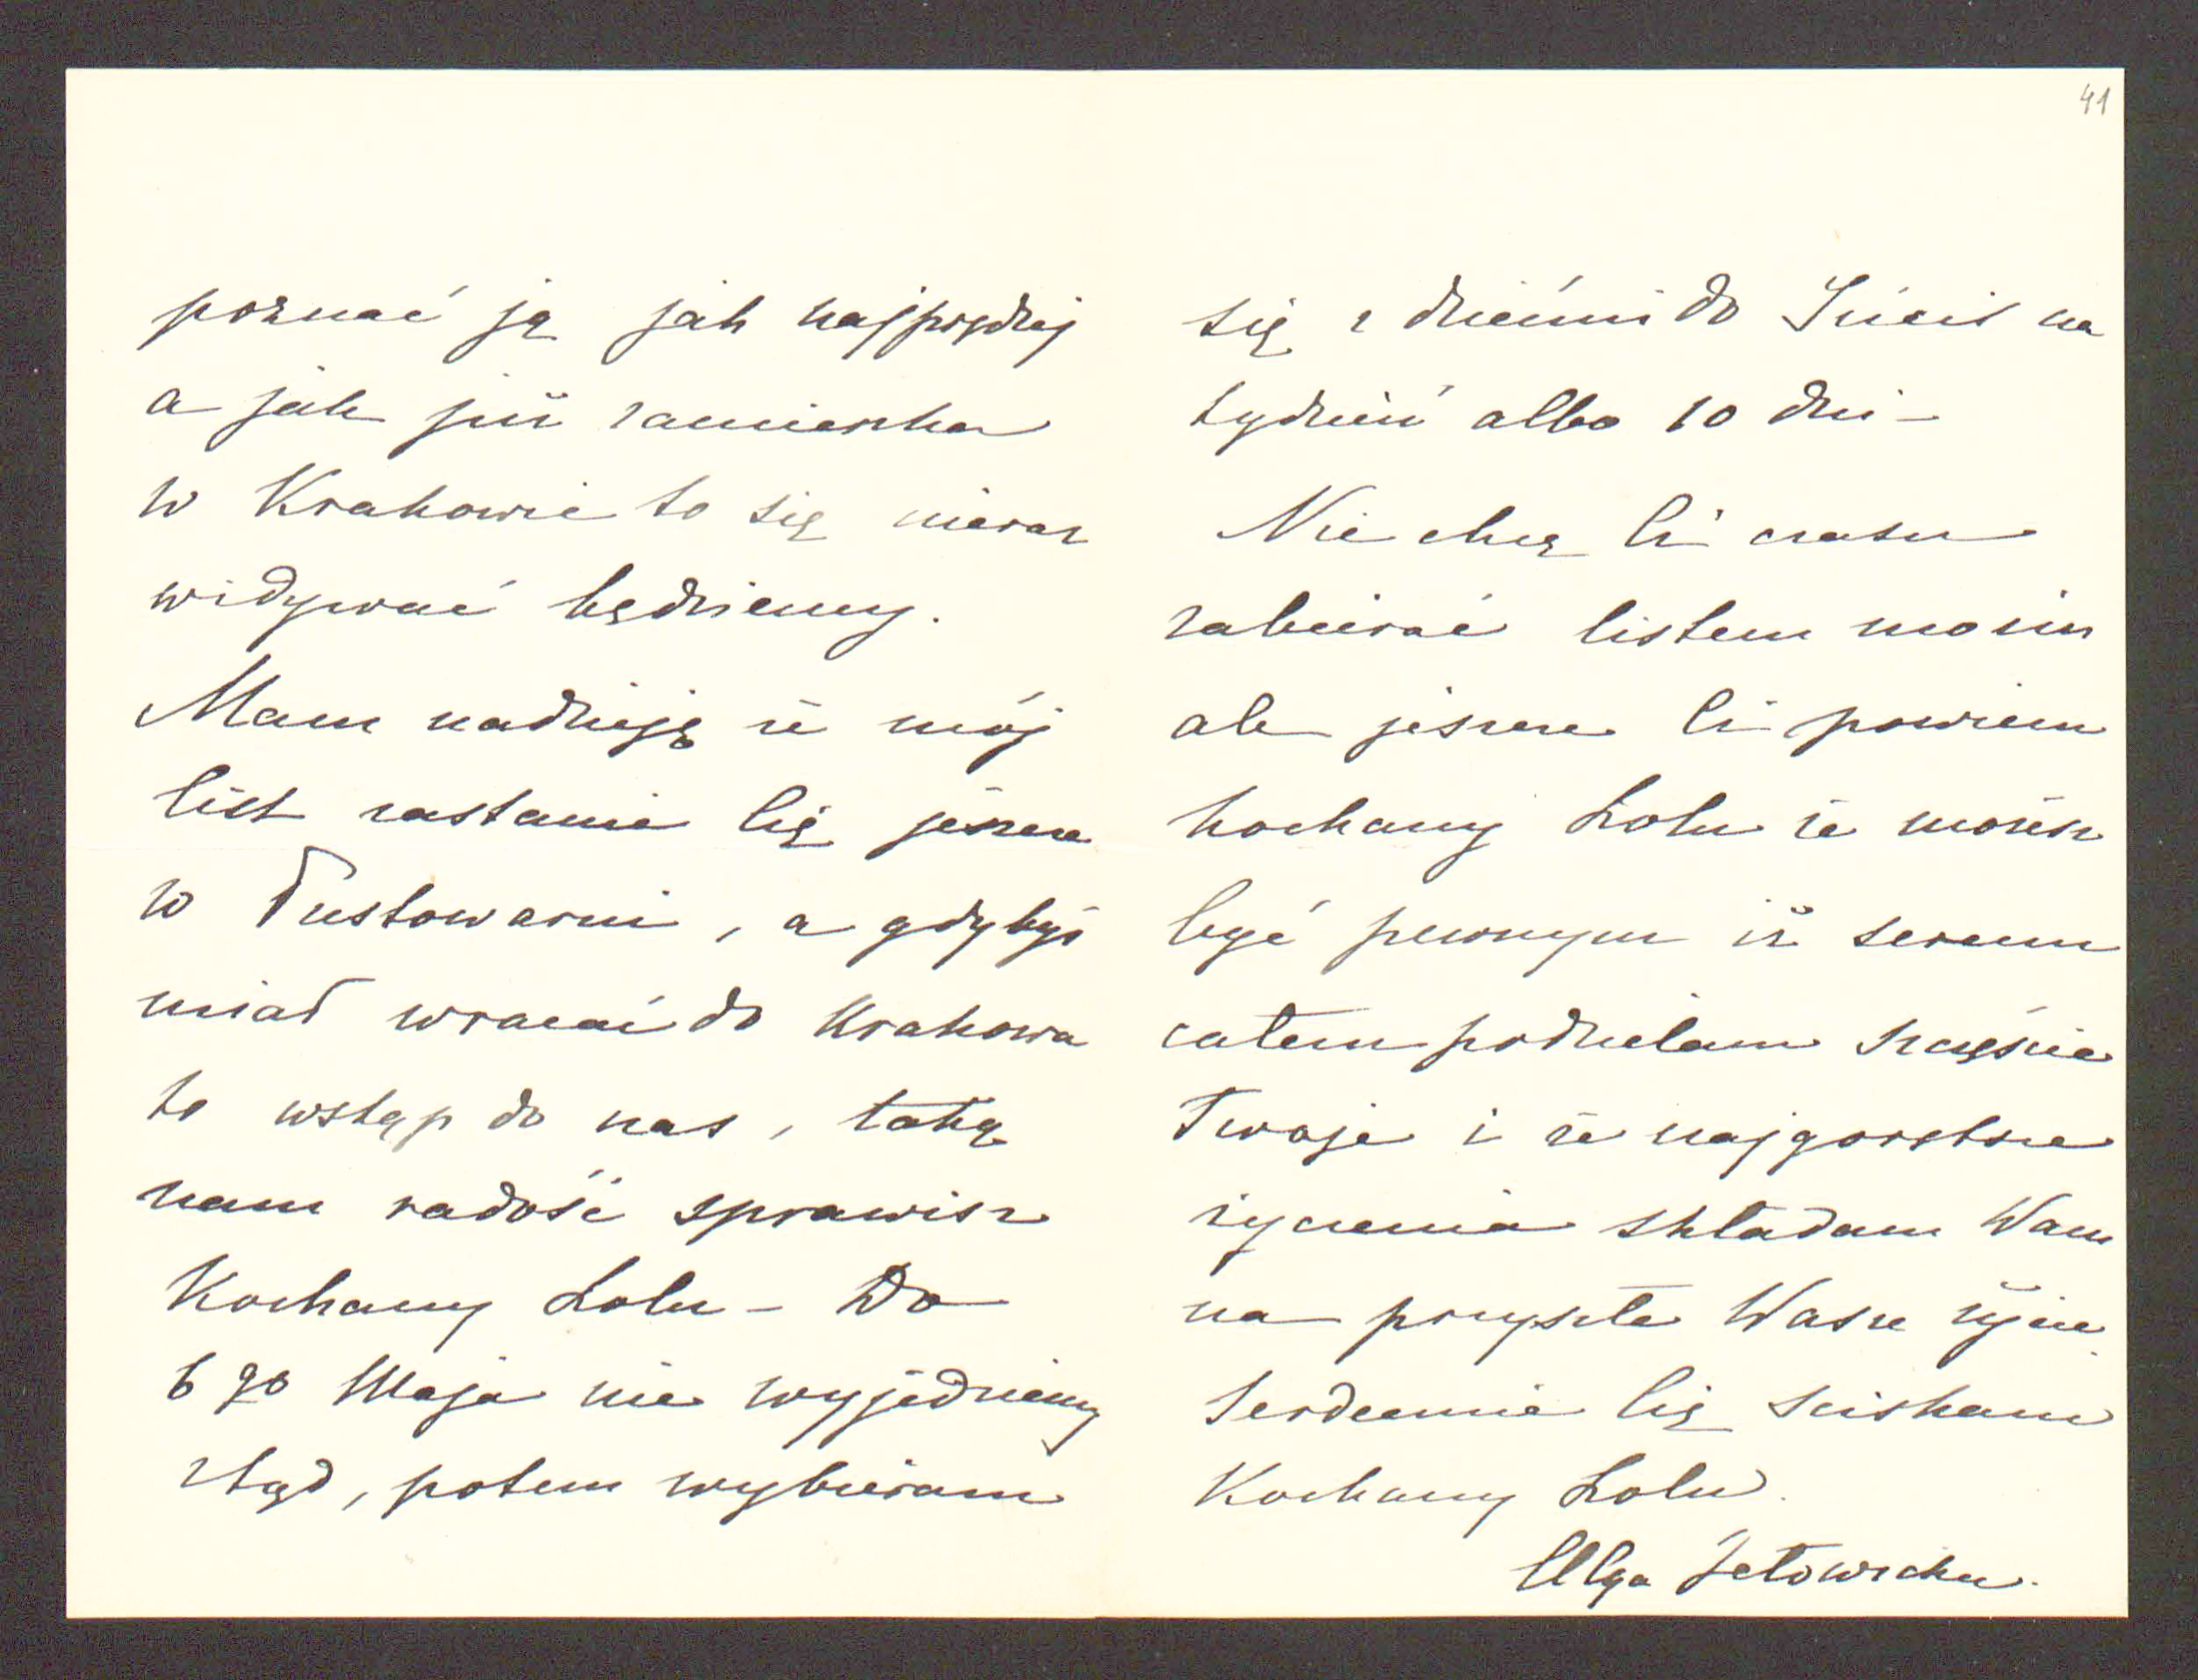 41
poznać ją jak najprędzej
a jak już zamieszka
w Krakowie to się nieraz
widywać będziemy.
Mam nadzieję że mój
list zastanie Cię jeszcze
w Pustowarni, a gdybyś
miał wracać do Krakowa
to wstąp do nas, taką
nam radość sprawisz
Kochany Lolu – Do
6 go Maja nie wyjedziemy
ztąd, potem wybieram
się z dziećmi do na
tydzień albo 10 dni –
Nie chcę Ci czasu
zabierać listem moim
ale jeszcze Ci powiem
kochany Lolu że możesz
być pewnym iż sercem
całem podzielam szczęście
Twoje i że najgorętsze
życzenia składam Wam
na przyszłe Wasze życie.
Serdecznie Cię sciskam
Kochany Lolu.
Olga Jełowicka.